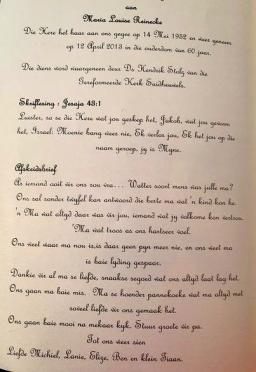 aan
Maria Louise Reinecke
Die Here het haar aan ons gegee op 14 Mei 1952 en weer geneem
op 12 April 2013 in die ouderdom van 60 jaar.
Die diens word waargeneem deur Ds Hendrik Stolz van die
Gereformeerde Kerk Suidheuwels.
Skriflesing : Jesaja 43:1
Luister, so sê die Here wat jou geskep het, Jakob, wat jou gevorm
het, Israel: Moenie bang wees nie, Ek verlos jou, Ek het jou op die
naam geroep, jy is Myne.
Afskeidsbrief
As iemand ooit vir ons sou vra… Watter soort mens was julle ma?
Ons sal sonder twyfel kan antwoord die beste ma wat 'n kind kon hê.
'n Ma wat altyd daar was vir jou, iemand wat jy volkome kon vertrou.
'Ma wat troos as ons hartseer voel.
Ons weet waar ma nou is,is daar geen pyn meer nie, en ons weet ma
is baie lyding gespaar.
Dankie vir al ma se liefde, snaakse segoed wat ons altyd laat lag het.
Ons gaan ma baie mis. Ma se hoender pannekoeke wat ma altyd met
soveel liefde vir ons gemaak het.
Ons gaan baie mooi na mekaar kyk. Stuur groete vir pa.
Tot ons weer sien
Liefde Michiel, Lanie, Elize, Ben en klein Tiaan.